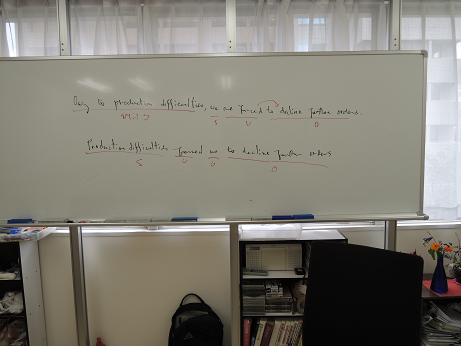 to production difficulties, we are forced to decline further orders.
S V O
Production difficulties forced us to decline further orders
S V O O